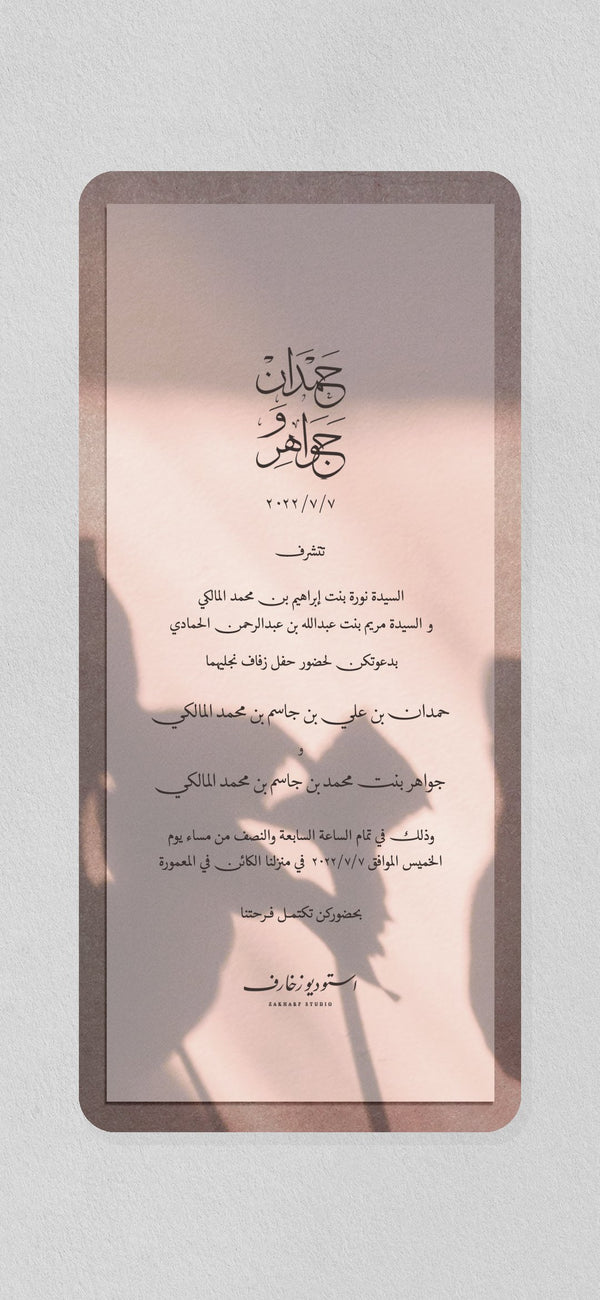 حَمْدَان
و
جَوَاهِر
٢٠٢٢/٧/٧
تتشرف
السيدة نورة بنت إبراهيم بن محمد المالكي
و السيدة مريم بنت عبدالله بن عبدالرحمن الحمادي
بدعوتكن لحضور حفل زفاف نجليهما
حمدان بن علي بن جاسم بن محمد المالكي
و
جواهر بنت محمد بن جاسم بن محمد المالكي
وذلك في تمام الساعة السابعة والنصف من مساء يوم
الخميس الموافق ٢٠٢٢/٧/٧ في منزلنا الكائن في المعمورة
بحضوركن تكتمل فرحتنا
استوديو زخارف
ZAKHARF STUDIO